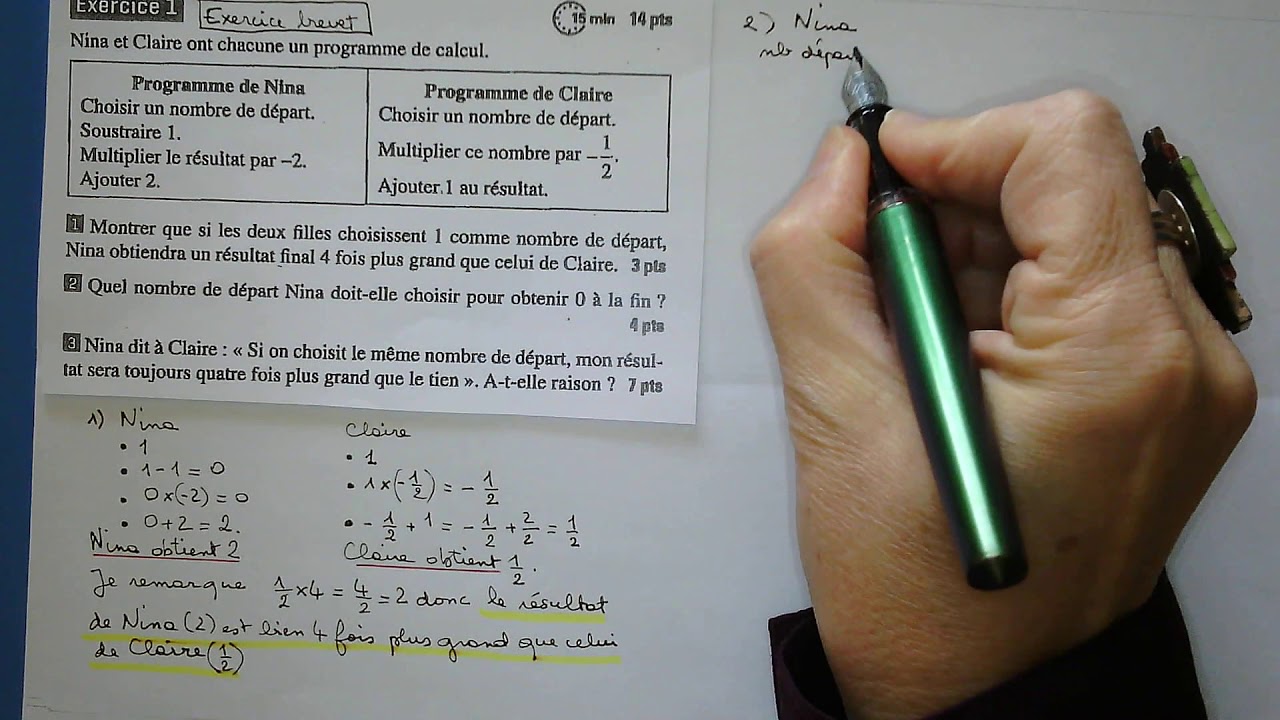 Exercice 1
Exercice brevet
15 min 14 pts
Nina et Claire ont chacune un programme de calcul.
Programme de Nina
Choisir un nombre de départ.
Soustraire 1.
Multiplier le résultat par –2.
Ajouter 2.
Programme de Claire
Choisir un nombre de départ.
Multiplier ce nombre par –1/2.
Ajouter 1 au résultat.
1 Montrer que si les deux filles choisissent 1 comme nombre de départ,
Nina obtiendra un résultat final 4 fois plus grand que celui de Claire. 3 pts
2 Quel nombre de départ Nina doit-elle choisir pour obtenir 0 à la fin ?
4 pts
3 Nina dit à Claire : « Si on choisit le même nombre de départ, mon résul-
tat sera toujours quatre fois plus grand que le tien ». A-t-elle raison ? 7 pts
1) Nina
• 1
• 1-1 = 0
• 0×(-2) = 0
• 0+2 = 2.
Nina obtient 2
Claire
• 1
• 1×(-1/2) = -1/2
• -1/2 + 1 = -1/2 + 2/2 = 1/2
Claire obtient 1/2.
Je remarque 1/2 ×4 = 4/2 = 2 donc le résultat
de Nina (2) est bien 4 fois plus grand que celui
de Claire (1/2)
2) Nina
nb départ